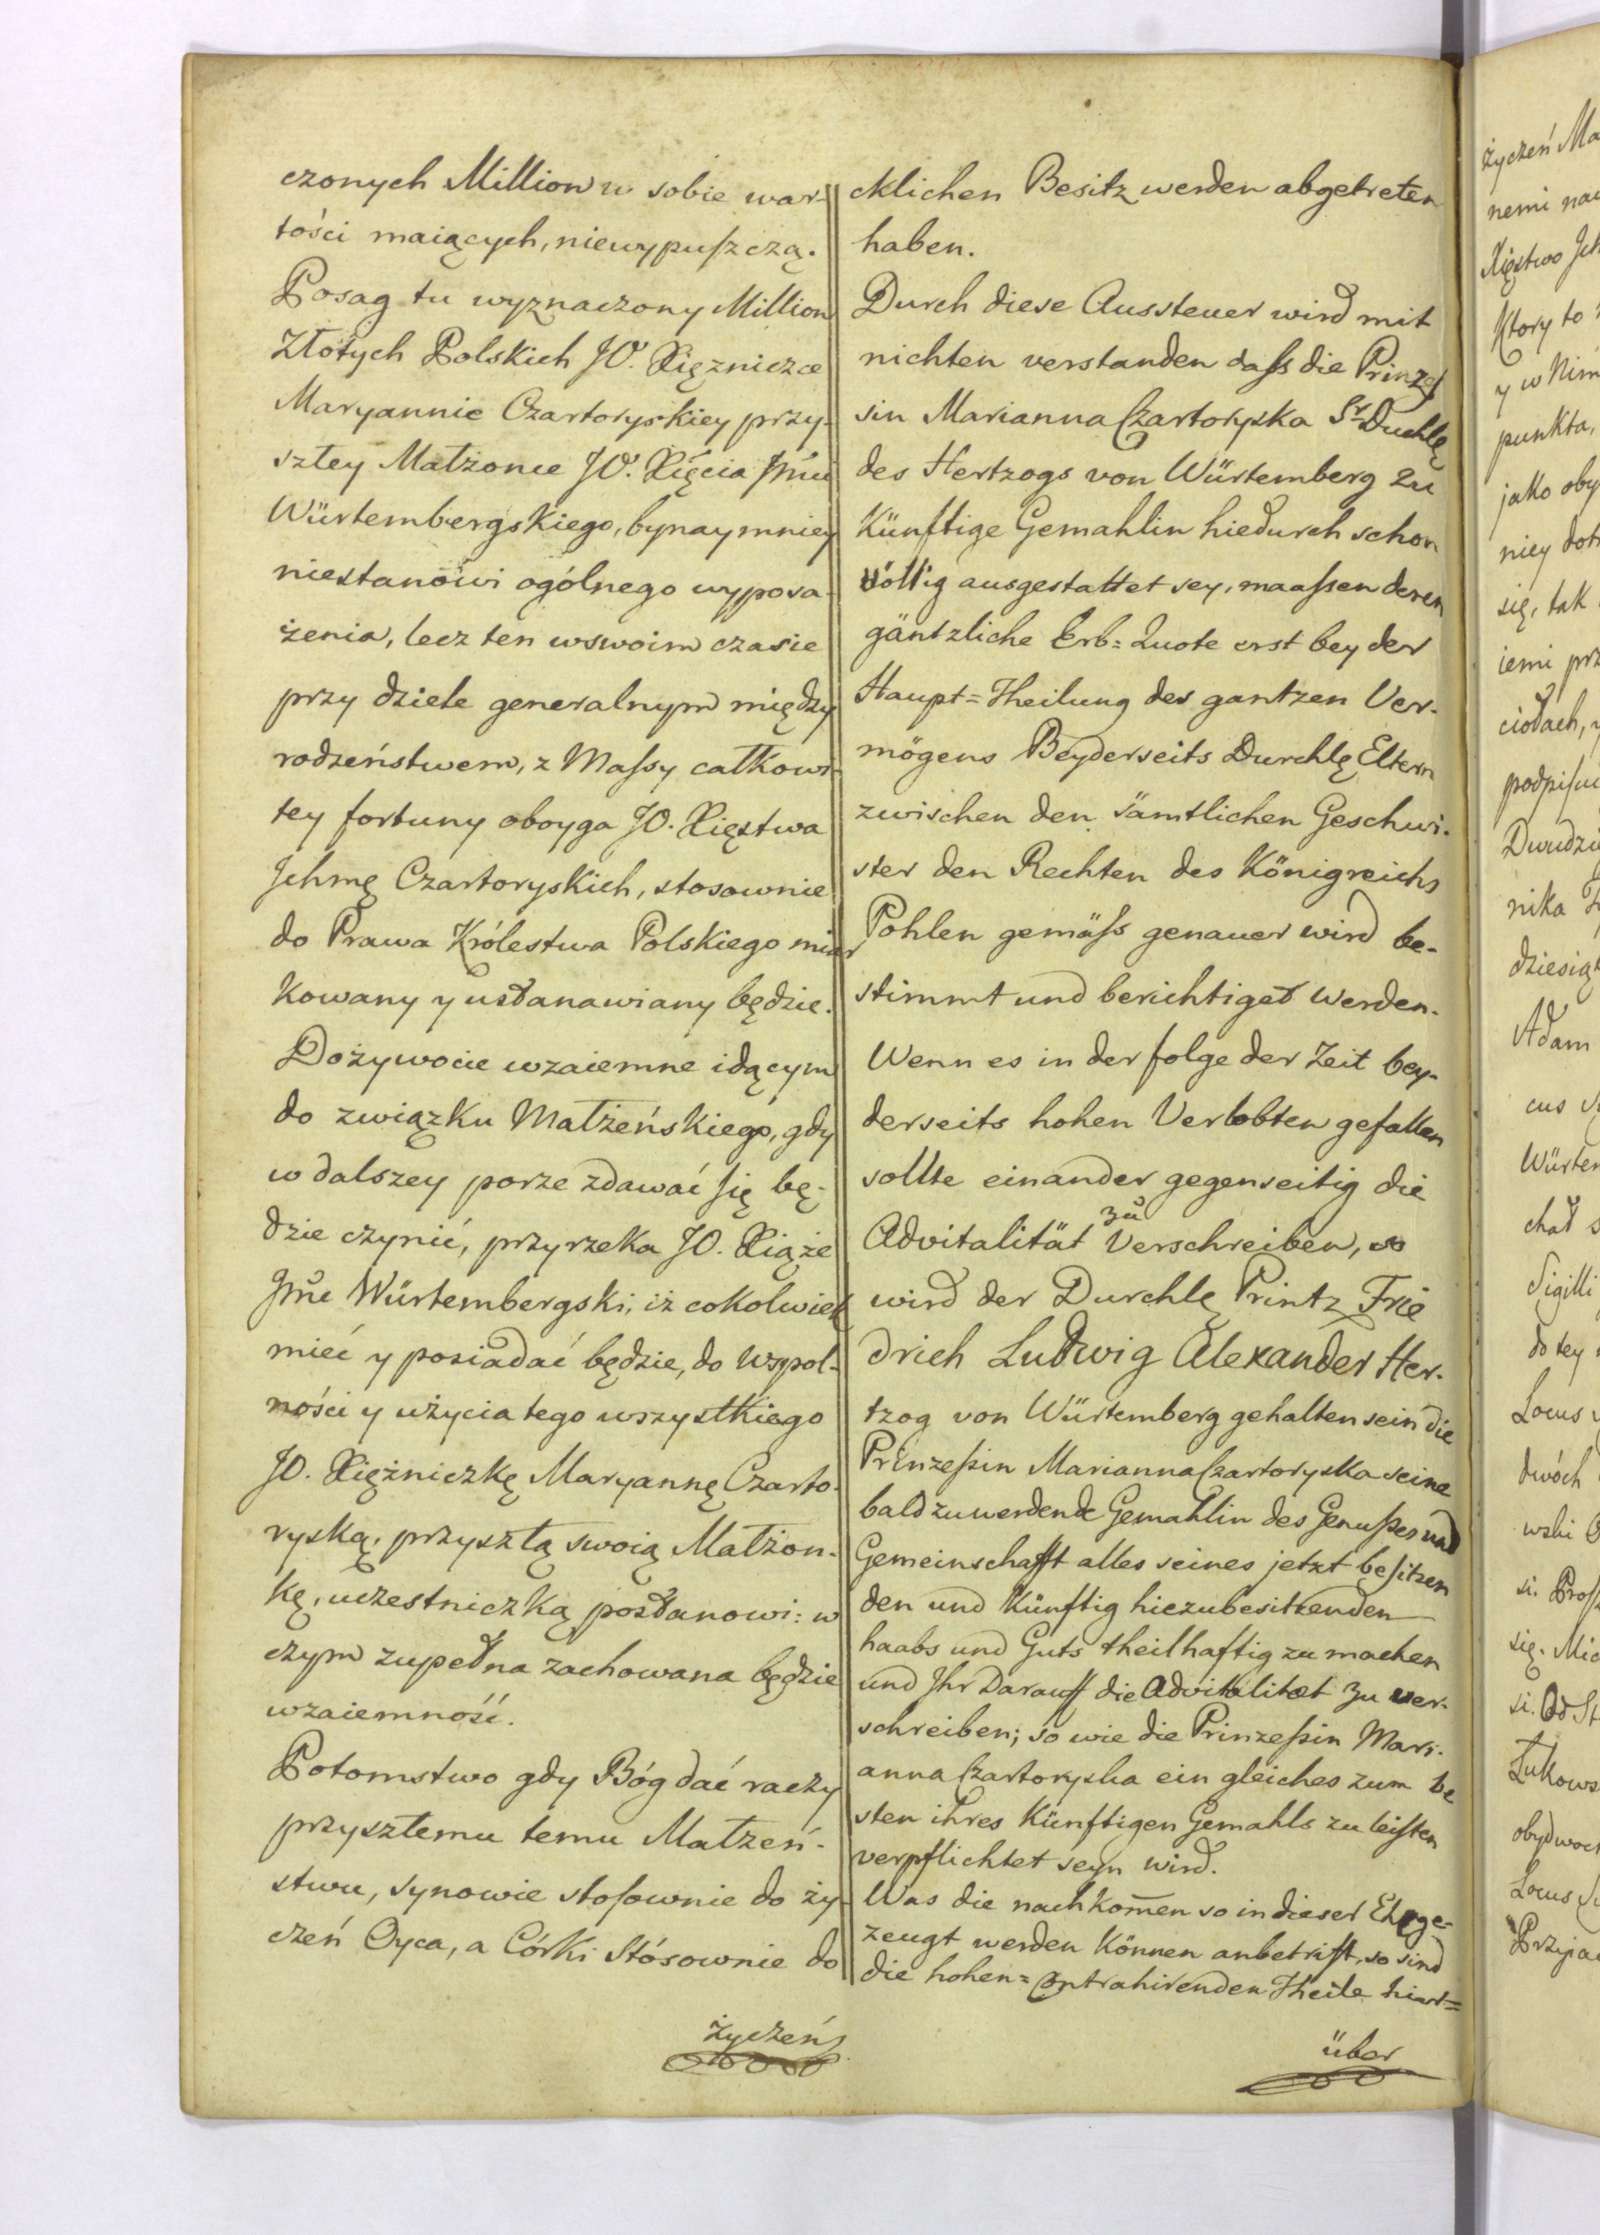 czonych Million w sobie war-
tości maiących, niewypuſzczą.
Posag tu wyznaczony Million
Złotych Polskich JO. Xiężniczce
Maryannie Czartoryskiey przy-
szłey Małżonce JO. Xięcia Jmci
Würtembergskiego, bynaymniey
niestanowi ogólnego wyposa-
żenia, lecz ten wswoim czasie
przy dziele generalnym między
rodzeństwem, z Maſsy całkowi-
tey fortuny oboyga JO. Xięstwa
Ichmę Czartoryskich, stosownie
do Prawa Królestwa Polskiego miar
kowany y ustanawiany będzie.
Dożywocie wzaiemne idącym
do związku Małżeńskiego, gdy
w dalszey porze zdawać ſię bę-
dzie czynić, przyrzeka JO. Xiąże
Jmć Würtembergski, iż cokolwiek
mieć y posiadać będzie, do wspól-
ności y użycia tego wszystkiego
JO. Xiężniczkę Maryannę Czarto-
ryską, przyszłą swoią Małżon-
kę, uczestniczką postanowi: w
czym zupełna zachowana będzie
wzaiemność.
Potomstwo gdy Bóg dać raczy
przyszłemu temu Małżeń-
stwu, synowie stoſownie do ży-
czeń Oyca, a Córki Stósownie do
życzeń
cklichen Besitz werden abgetreten
haben.
Durch diese Aussteuer wird mit
nichten verstanden daſs die Prinzeſ
sin Marianna Czartoryska Sr Duchlę
des Hertzogs von Würtemberg zu
Künftige Gemahlin hiedurch schon
völlig ausgestattet sey, maaſsen deren
gäntzliche Erb=Quote erst bey der
Haupt=Theilung des gantzen Ver-
mögens Beyderseits Durchlę Eltern
zwischen den sämtlichen Geschwi-
ster den Rechten des Königreichs
Pohlen gemäſs genauer wird be-
stimmt und berichtiget werden.
Wenn es in der folge der Zeit bey-
derseits hohen Verlobten gefallen
sollte einander gegenseitig die
Advitalität zu Verschreiben, so
wird der Durchlę Printz Frie
drich Ludwig Alexander Her-
tzog von Würtemberg gehalten sein die
Prinzeſsin Marianna Czartoryska seine
bald zuwerdende Gemahlin des Genuſses und
Gemeinschafft alles seines jetzt beſitzen
den und Künftig hiezubesitzenden
haabs und Guts theilhaftig zu machen
und Ihr Darauff die Advitalitæt zu ver-
schreiben; so wie die Prinzeſsin Mari-
anna Czartoryska ein gleiches zum be
sten ihres Künftigen Gemahls zu leiſten
verpflichtet seyn wird.
Was die nachkom̄en so in dieser Ehe ge-
zeugt werden können anbetrift, so sind
die hohen=Contrahirenden Theile hier=
über
życzeń
nemi
Xięstwo
Ktory to
y w
punkta,
jako
niey
się, tak
iemi
podpiſ
nika
Adam
cus
Sigilli
do tey
Locus
dwóch
wski
si.
się.
si.
Locus